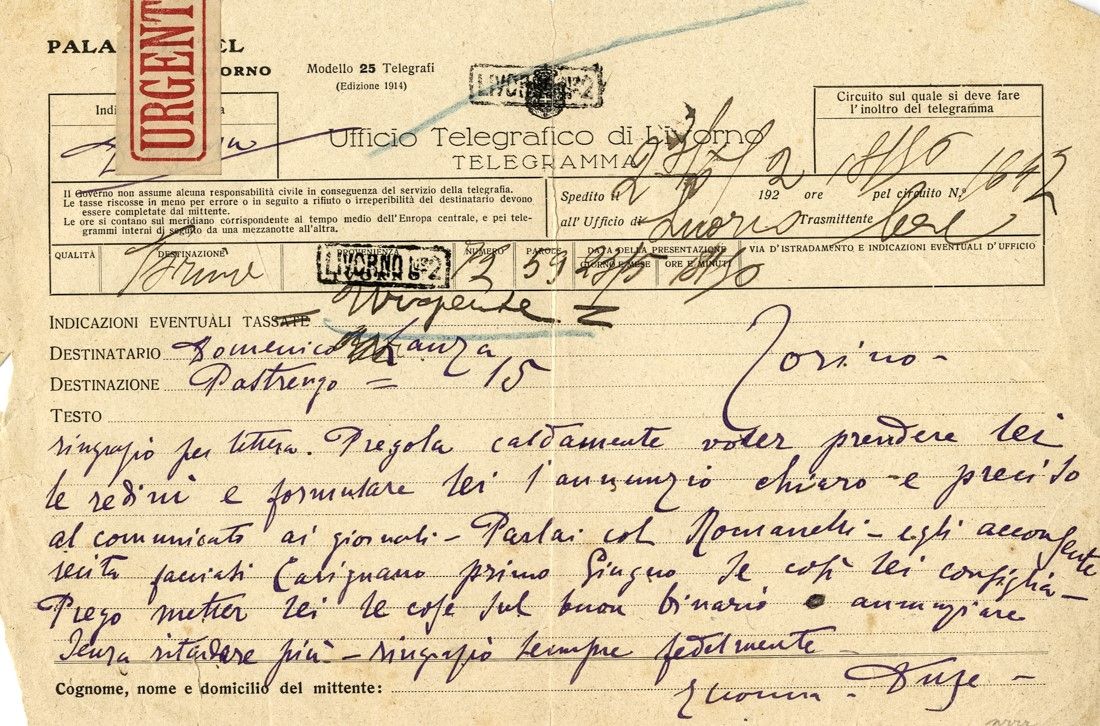 PALA EL
ORNO
URGENT
Modello 25 Telegrafi
(Edizione 1914)
LIVORNO N.2
Indi
Circuito sul quale si deve fare
l'inoltro del telegramma
Ufficio Telegrafico di Livorno
TELEGRAMMA
Il Governo non assume alcuna responsabilità civile in conseguenza del servizio della telegrafia.
Le tasse riscosse in meno per errore o in seguito a rifiuto o irreperibilità del destinatario devono
essere completate dal mittente.
Le ore si contano sul meridiano corrispondente al tempo medio dell'Europa centrale, e pei tele-
grammi interni di seguito da una mezzanotte all'altra.
Spedito il 192 2 ore 18/50 pel circuito N.° 1642
all'Ufficio di Trasmittente
QUALITÀ DESTINAZIONE PROVENIENZA NUMERO PAROLE DATA DELLA PRESENTAZIONE VIA D'ISTRADAMENTO E INDICAZIONI EVENTUALI D'UFFICIO
GIORNO E MESE ORE E MINUTI
Torino LIVORNO N.2 59
INDICAZIONI EVENTUALI TASSATE = Urgente =
DESTINATARIO Domenico Lanza Torino -
DESTINAZIONE Pastrengo = 15
TESTO
ringrazio per lettera. Pregola caldamente voler prendere lei
le redini e formulare lei l'annunzio chiaro e preciso
al comunicato ai giornali - Parlai col Romanelli - egli acconsente
recita facciasi Carignano primo Giugno se così lei consiglia -
Prego metter lei le cose sul buon binario annunziare
senza ritardare più - ringrazio sempre fedelmente
Cognome, nome e domicilio del mittente: Eleonora - Duse -